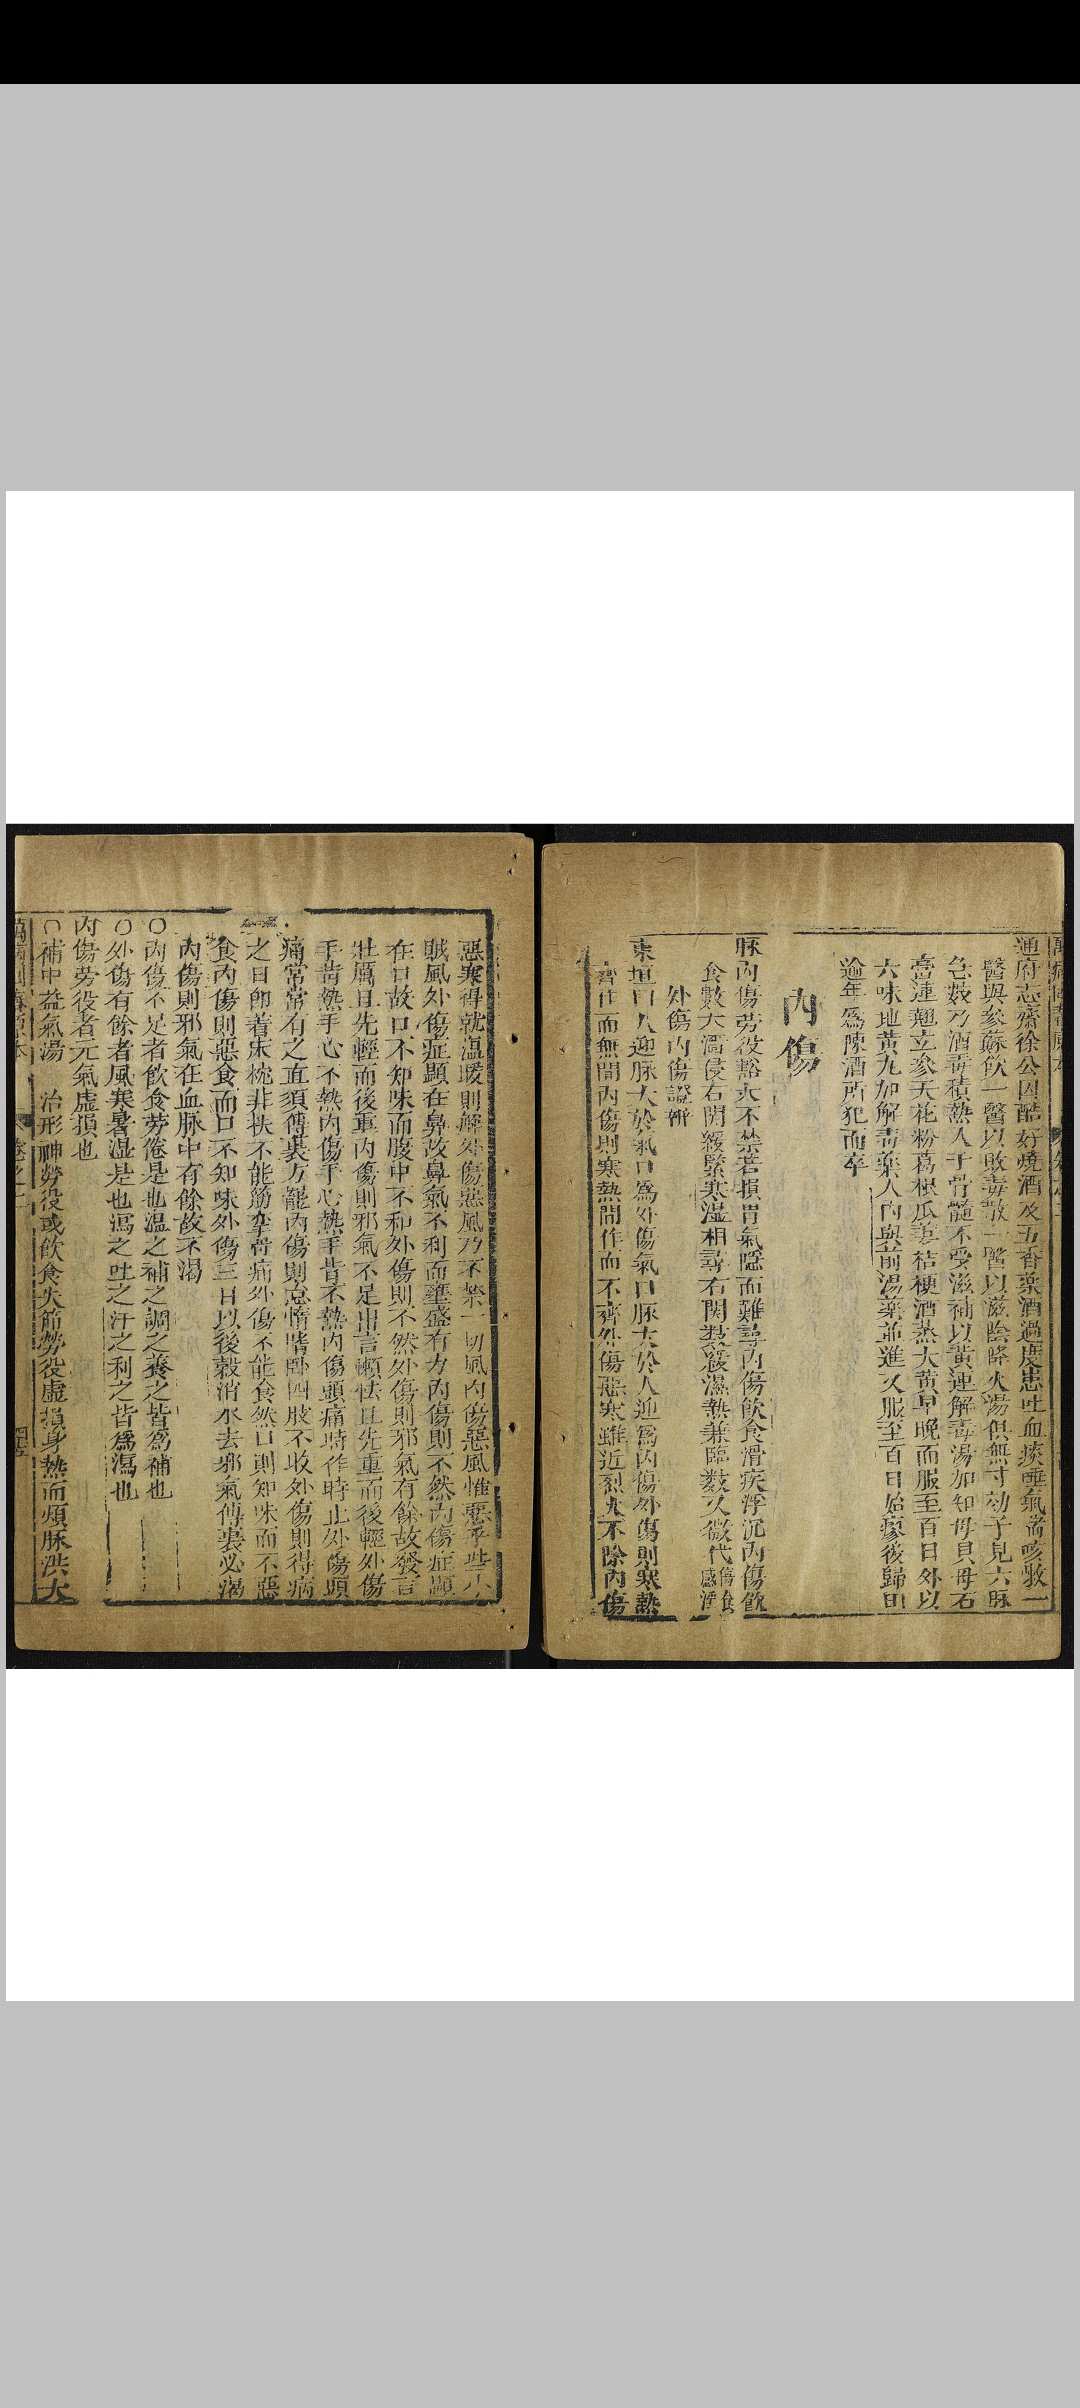 萬病回春原本
通府志齋徐公因酷好燒酒及五香藥酒過度患吐血痰唾氣喘咳嗽一
醫與參蘇飲一醫以敗毒散一醫以滋陰降火湯俱無寸効予見六脉
急數乃酒毒積熱入于骨髓不受滋補以黃連解毒湯加知母貝母石
膏連翹立參天花粉葛根瓜蔞桔梗酒蒸大黃早晚而服至百日外以
六味地黃丸加解毒藥入內與前湯藥並進久服至百日始瘳後歸田
逾年爲陳酒所犯而卒
內傷
脉內傷勞役豁大不禁若損胃氣隱而難尋內傷飲食滑疾浮沉內傷飲
食數大濡侵右関緩緊寒湿相尋右関数緩濕熱兼臨数又微代傷食感滯
外傷內傷證辨
東垣曰人迎脉大於氣口爲外傷氣口脉大於人迎爲內傷外傷則寒熱
齊作而無間內傷則寒熱間作而不齊外傷惡寒雖近烈火不除內傷
惡寒得就溫暖則解外傷惡風乃不禁一切風內傷惡風惟惡乎些小
賊風外傷症顯在鼻故鼻氣不利而壅盛有力內傷則不然內傷症顯
在口故口不知味而腹中不和外傷則不然外傷則邪氣有餘故發言
壯厲且先輕而後重內傷則邪氣不足出言懶怯且先重而後輕外傷
手背熱手心不熱內傷手心熱手背不熱內傷頭痛時作時止外傷頭
痛常常有之直須傳裏方罷內傷則怠惰嗜臥四肢不收外傷則得病
之日即着床枕非扶不能筋攣骨痛外傷不能食然口則知味而不惡
食內傷則惡食而口不知味外傷三日以後穀消水去邪氣傳裏必渴
內傷則邪氣在血脉中有餘故不渴
○內傷不足者飲食勞倦是也溫之補之調之養之皆爲補也
○外傷有餘者風寒暑湿是也瀉之吐之汗之利之皆爲瀉也
內傷勞役者元氣虛損也
○補中益氣湯 治形神勞役或飲食失節勞役虛損身熱而煩脉洪大
卷之二